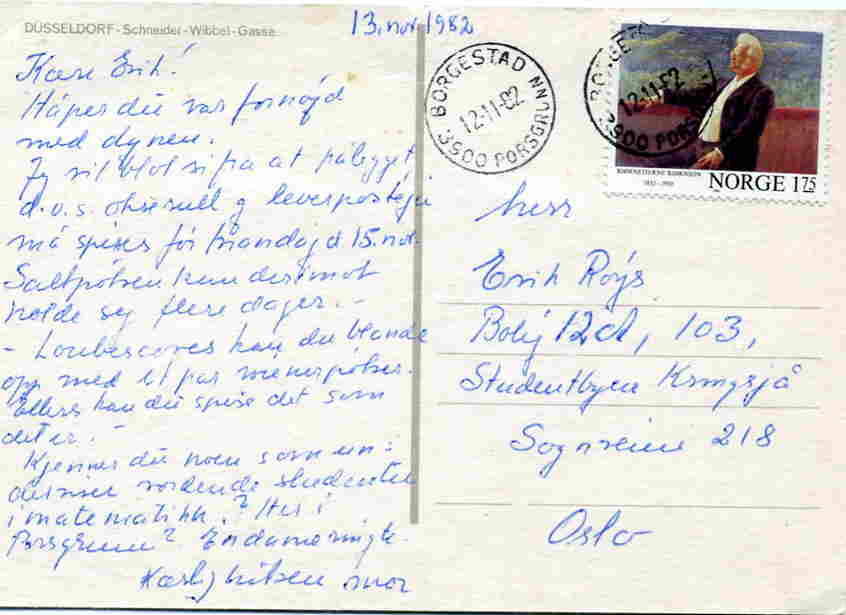 DÜSSELDORF - Schneider-Wibbel-Gasse
13. nov. 1982
Kære Erik!
Håper du var fornøyd
med dynen.
Jeg vil blot si fra at pålegget
d.v.s. okserull og leverpostejen
må spises før mandag d 15. nov.
Saltpølsen kan derimot
holde seg flere dager. -
- Loubescoves kan du blande
opp med et par wienerpølser.
Ellers kan du spise det som
det er. -
Kjenner du noen som un-
derviser vordende studenter
i matematikk? Her i
Porsgrunn? Endame
Kærlig hilsen mor
BORGESTAD
12-11-82
3900 PORSGRUNN
BORGEST
12-11-82
3900 PORSG
BJØRNSTJERNE BJØRNSON
1832 - 1910
NORGE 175
herr
Erik Røys
Bolig 12d, 103,
Studentbyen Kringsjå
Sognsveien 218
Oslo